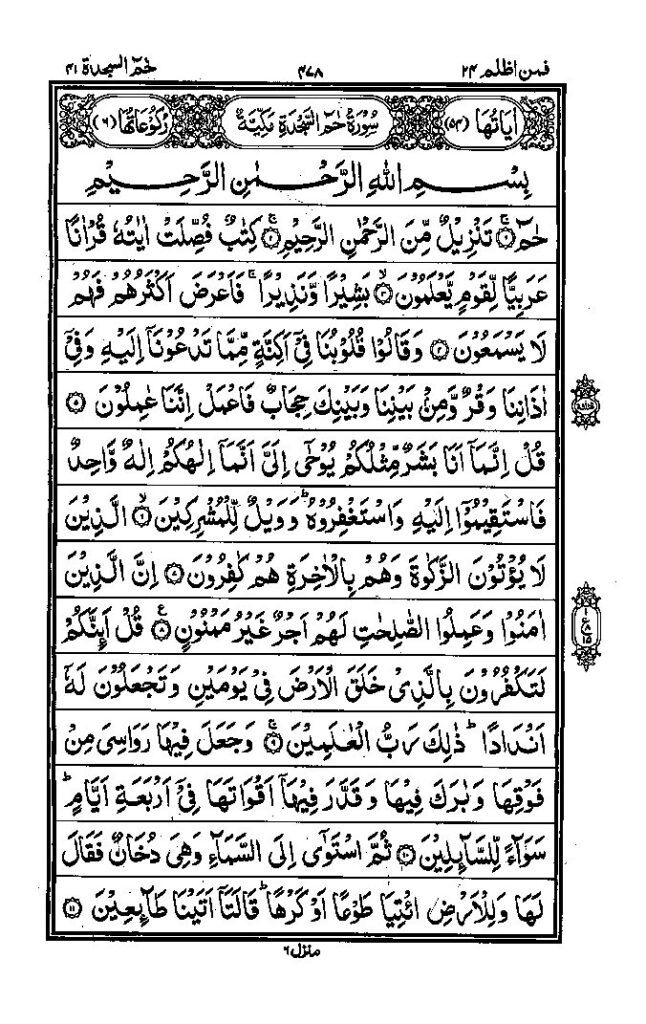 فمن اظلم ۲۴ ۴۷۸ حٰمٓ السجدة ۴۱
اٰيَاتُهَا (۵۴) سُوْرَةُ حٰمٓ السَّجْدَةِ مَكِّيَّةٌ رُكُوْعَاتُهَا (۶)
بِسْمِ اللهِ الرَّحْمٰنِ الرَّحِيْمِ
حٰمٓ ۚ۝۱ تَنْزِيْلٌ مِّنَ الرَّحْمٰنِ الرَّحِيْمِ ۚ۝۲ كِتٰبٌ فُصِّلَتْ اٰيٰتُهٗ قُرْاٰنًا
عَرَبِيًّا لِّقَوْمٍ يَّعْلَمُوْنَ ۙ۝۳ بَشِيْرًا وَّنَذِيْرًا ۚ فَاَعْرَضَ اَكْثَرُهُمْ فَهُمْ
لَا يَسْمَعُوْنَ ۝۴ وَقَالُوْا قُلُوْبُنَا فِيْٓ اَكِنَّةٍ مِّمَّا تَدْعُوْنَآ اِلَيْهِ وَفِيْٓ
اٰذَانِنَا وَقْرٌ وَّمِنْۢ بَيْنِنَا وَبَيْنِكَ حِجَابٌ فَاعْمَلْ اِنَّنَا عٰمِلُوْنَ ۝۵
قُلْ اِنَّمَآ اَنَا بَشَرٌ مِّثْلُكُمْ يُوْحٰٓى اِلَيَّ اَنَّمَآ اِلٰهُكُمْ اِلٰهٌ وَّاحِدٌ
فَاسْتَقِيْمُوْٓا اِلَيْهِ وَاسْتَغْفِرُوْهُ ؕ وَوَيْلٌ لِّلْمُشْرِكِيْنَ ۙ۝۶ الَّذِيْنَ
لَا يُؤْتُوْنَ الزَّكٰوةَ وَهُمْ بِالْاٰخِرَةِ هُمْ كٰفِرُوْنَ ۝۷ اِنَّ الَّذِيْنَ
اٰمَنُوْا وَعَمِلُوا الصّٰلِحٰتِ لَهُمْ اَجْرٌ غَيْرُ مَمْنُوْنٍ ۝۸ قُلْ اَئِنَّكُمْ
لَتَكْفُرُوْنَ بِالَّذِيْ خَلَقَ الْاَرْضَ فِيْ يَوْمَيْنِ وَتَجْعَلُوْنَ لَهٗٓ
اَنْدَادًا ؕ ذٰلِكَ رَبُّ الْعٰلَمِيْنَ ۚ۝۹ وَجَعَلَ فِيْهَا رَوَاسِيَ مِنْ
فَوْقِهَا وَبٰرَكَ فِيْهَا وَقَدَّرَ فِيْهَآ اَقْوَاتَهَا فِيْٓ اَرْبَعَةِ اَيَّامٍ ؕ
سَوَآءً لِّلسَّآئِلِيْنَ ۝۱۰ ثُمَّ اسْتَوٰٓى اِلَى السَّمَآءِ وَهِيَ دُخَانٌ فَقَالَ
لَهَا وَلِلْاَرْضِ ائْتِيَا طَوْعًا اَوْ كَرْهًا ؕ قَالَتَآ اَتَيْنَا طَآئِعِيْنَ ۝۱۱
ع ۱ ۱۵
منزل ۶